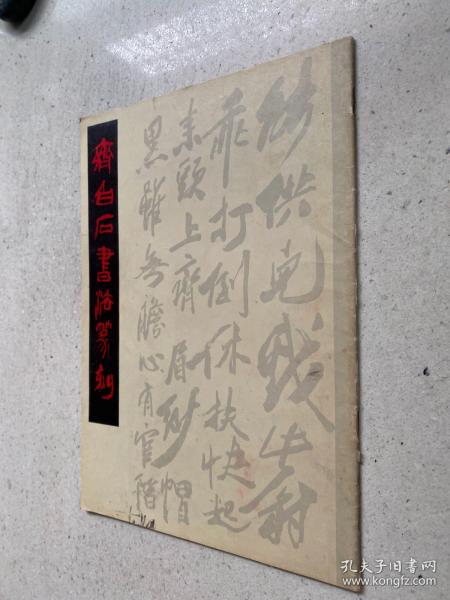 齊白石書法篆刻
能供兒戲此翁
乖打倒休扶快起
來頭上齊眉紗帽
黑雖無膽心有官階
孔夫子旧书网
www.kongfz.com